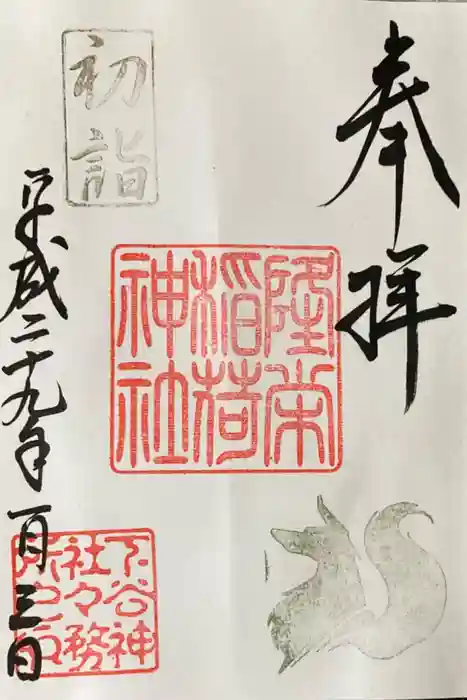 奉拝
隆栄
稲荷
神社
初詣
平成二十九年一月三日
下谷神
社々務
所之印